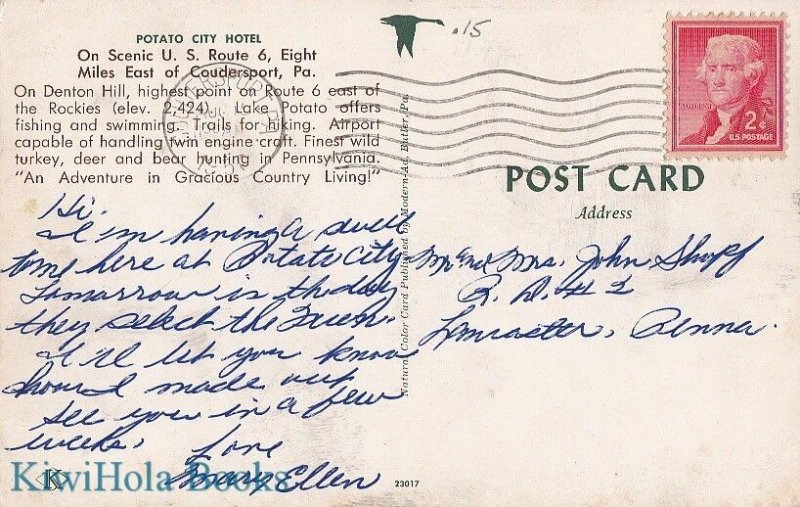 POTATO CITY HOTEL
On Scenic U. S. Route 6, Eight
Miles East of Coudersport, Pa.
On Denton Hill, highest point on Route 6 east of
the Rockies (elev. 2,424). Lake Potato offers
fishing and swimming. Trails for hiking. Airport
capable of handling twin engine craft. Finest wild
turkey, deer and bear hunting in Pennsylvania.
"An Adventure in Gracious Country Living!"
Hi.
I'm having a swell
time here at Potato City
Tomorrow is the day
they select the Queen.
I'll let you know
how I made out
see you in a few
weeks.
Love
Mary Ellen
KiwiHola Books
K
Natural Color Card Published by Modern-Ad, Butler, Pa.
.15
JEFFERSON
2¢
U.S. POSTAGE
POST CARD
Address
Mr. and Mrs. John Shopf
R. D. # 2
Lancaster, Penna.
23017